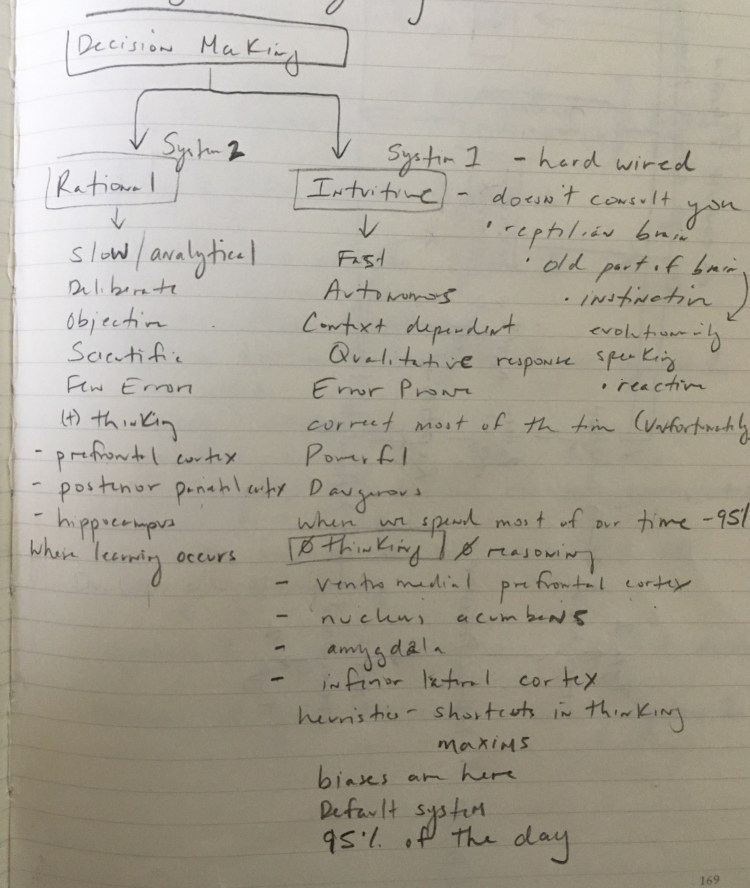 Decision Making
System 2
Rational
slow/analytical
Deliberate
Objective
Scientific
Few Errors
(+) thinking
- prefrontal cortex
- posterior parietal cortex
- hippocampus
where learning occurs
System 1 - hard wired
Intuitive - doesn't consult you
• reptilian brain
Fast • old part of brain
Autonomos • instinctive
Context dependent evolutionarily
Qualitative response speaking
Error Prone • reactive
correct most of the time (unfortunately
Powerful
Dangerous
where we spend most of our time - 95%
Ø thinking Ø reasoning
- ventro medial prefrontal cortex
- nucleus acumbens
- amygdala
- inferior lateral cortex
heuristics - shortcuts in thinking
maxims
biases are here
Default system
95% of the day
169